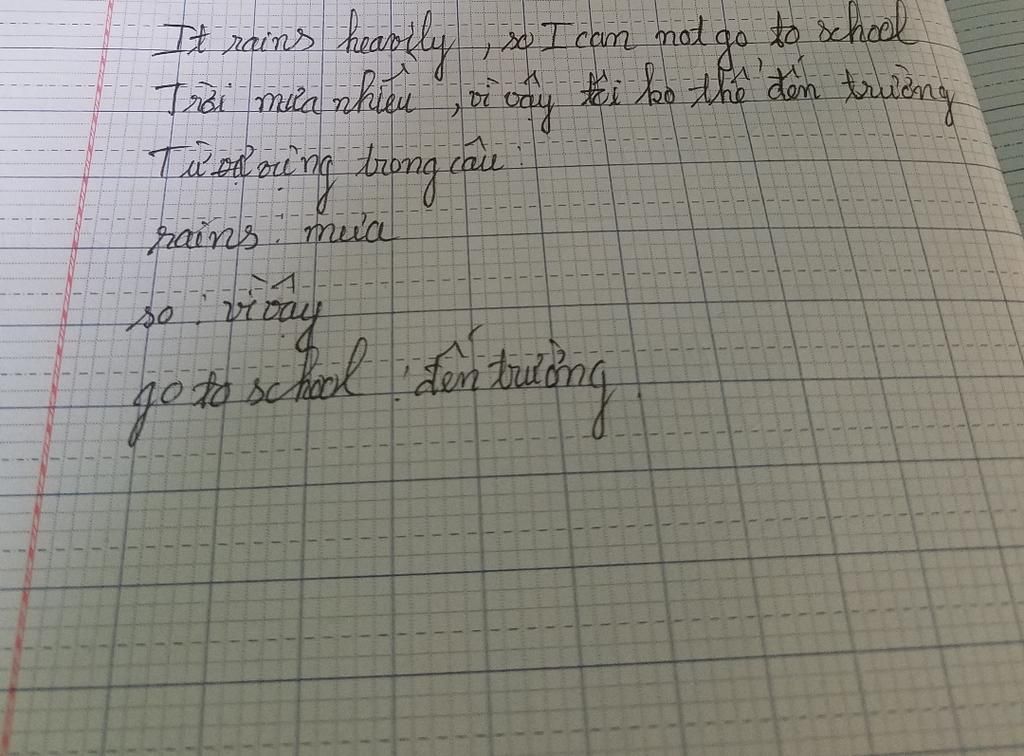 It rains heavily, so I can not go to school
Trời mưa nhiều, vì vậy tôi ko thể đến trường
Từ vựng trong câu:
rains: mưa
so: vì vậy
go to school: đến trường.